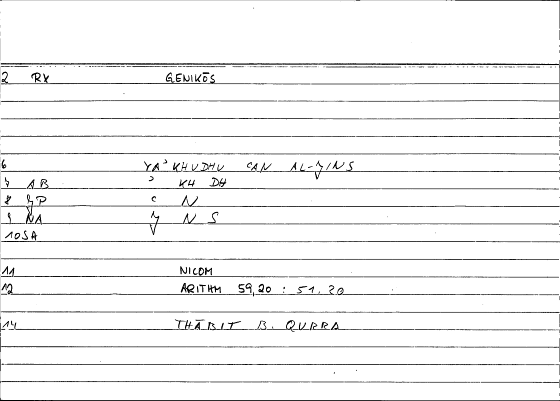 2 RX GENIKŌS
6 YAʾKHUDHU ʿAN AL-ǦINS
7 AB ʾ KH DH
8 ǦP ʿ N
9 NA Ǧ N S
10 SA
11 NICOM
12 ARITHM 59,20 : 51.20
14 THĀBIT B. QURRA